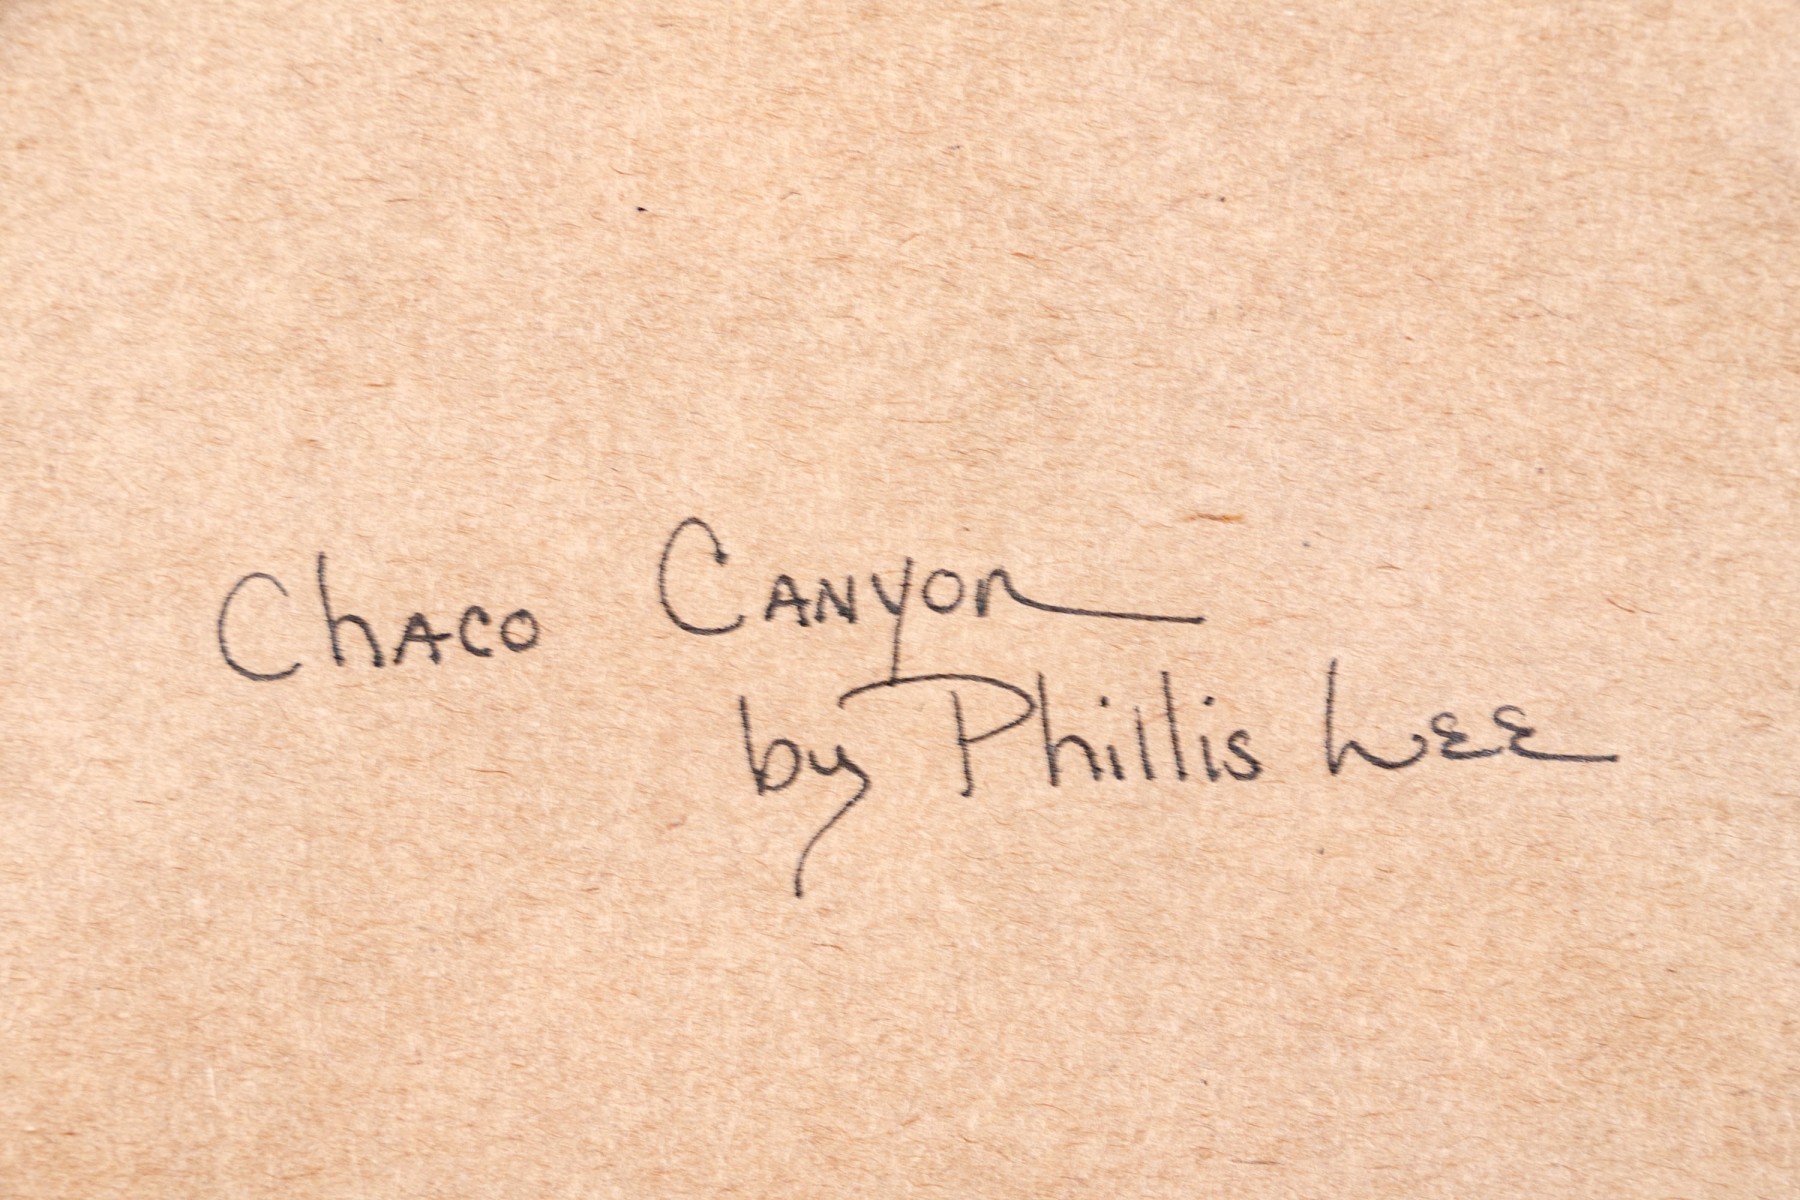 Chaco Canyon
by Phillis Lee